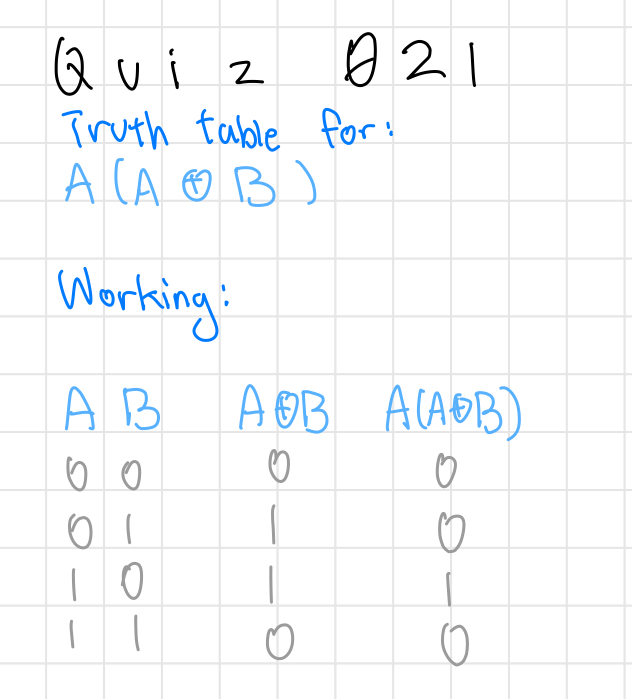 Quiz 021
Truth table for:
A(A⊕B)
Working:
A B A⊕B A(A⊕B)
0 0 0 0
0 1 1 0
1 0 1 1
1 1 0 0